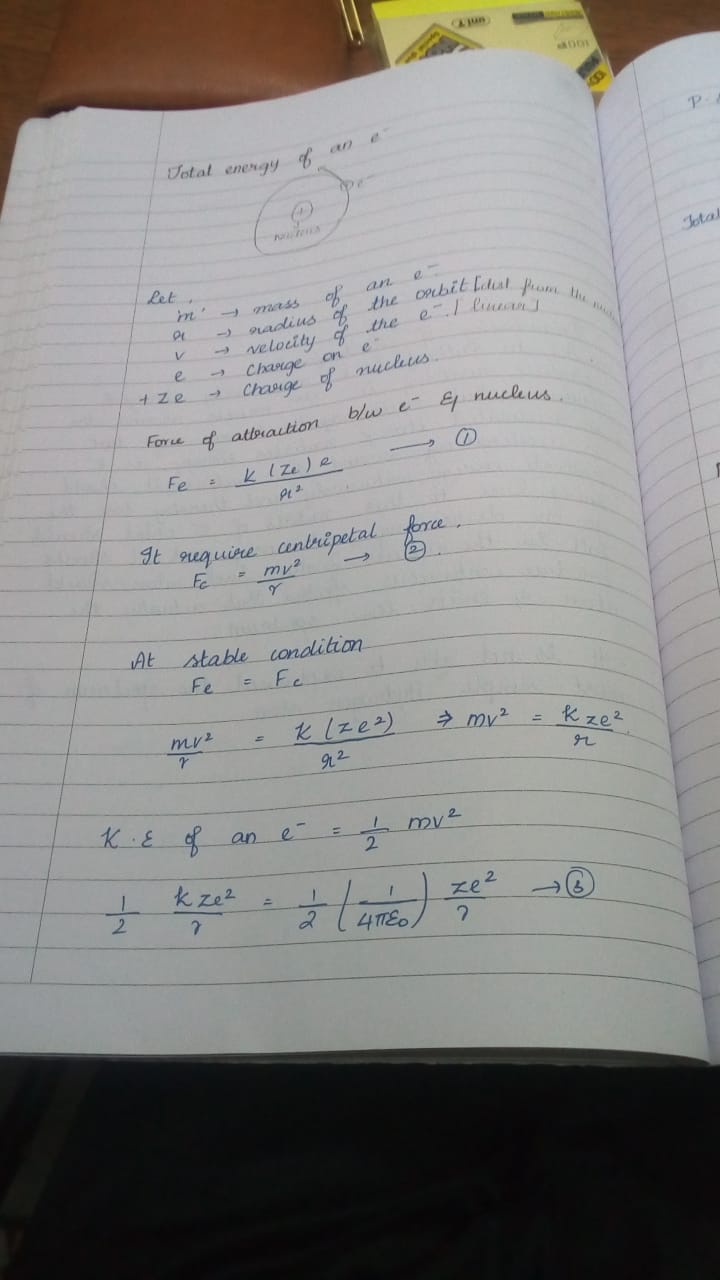 Total energy of an e⁻
e⁻
+
nucleus
Let,
m → mass of an e⁻
r → radius of the orbit [dist from the
v → velocity of the e⁻. / linear]
e → charge on e⁻
+ Ze → Charge of nucleus.
Force of attraction b/w e⁻ & nucleus.
Fe = K (Ze) e / r² → ①
It require centripetal force.
Fc = mv² / r → ②.
At stable condition
Fe = Fc
mv² / r = K (Ze²) / r² ⇒ mv² = K ze² / r
K.E of an e⁻ = 1/2 mv²
1/2 K ze² / r = 1/2 (1 / 4πε₀) ze² / r → ③
P.
Total